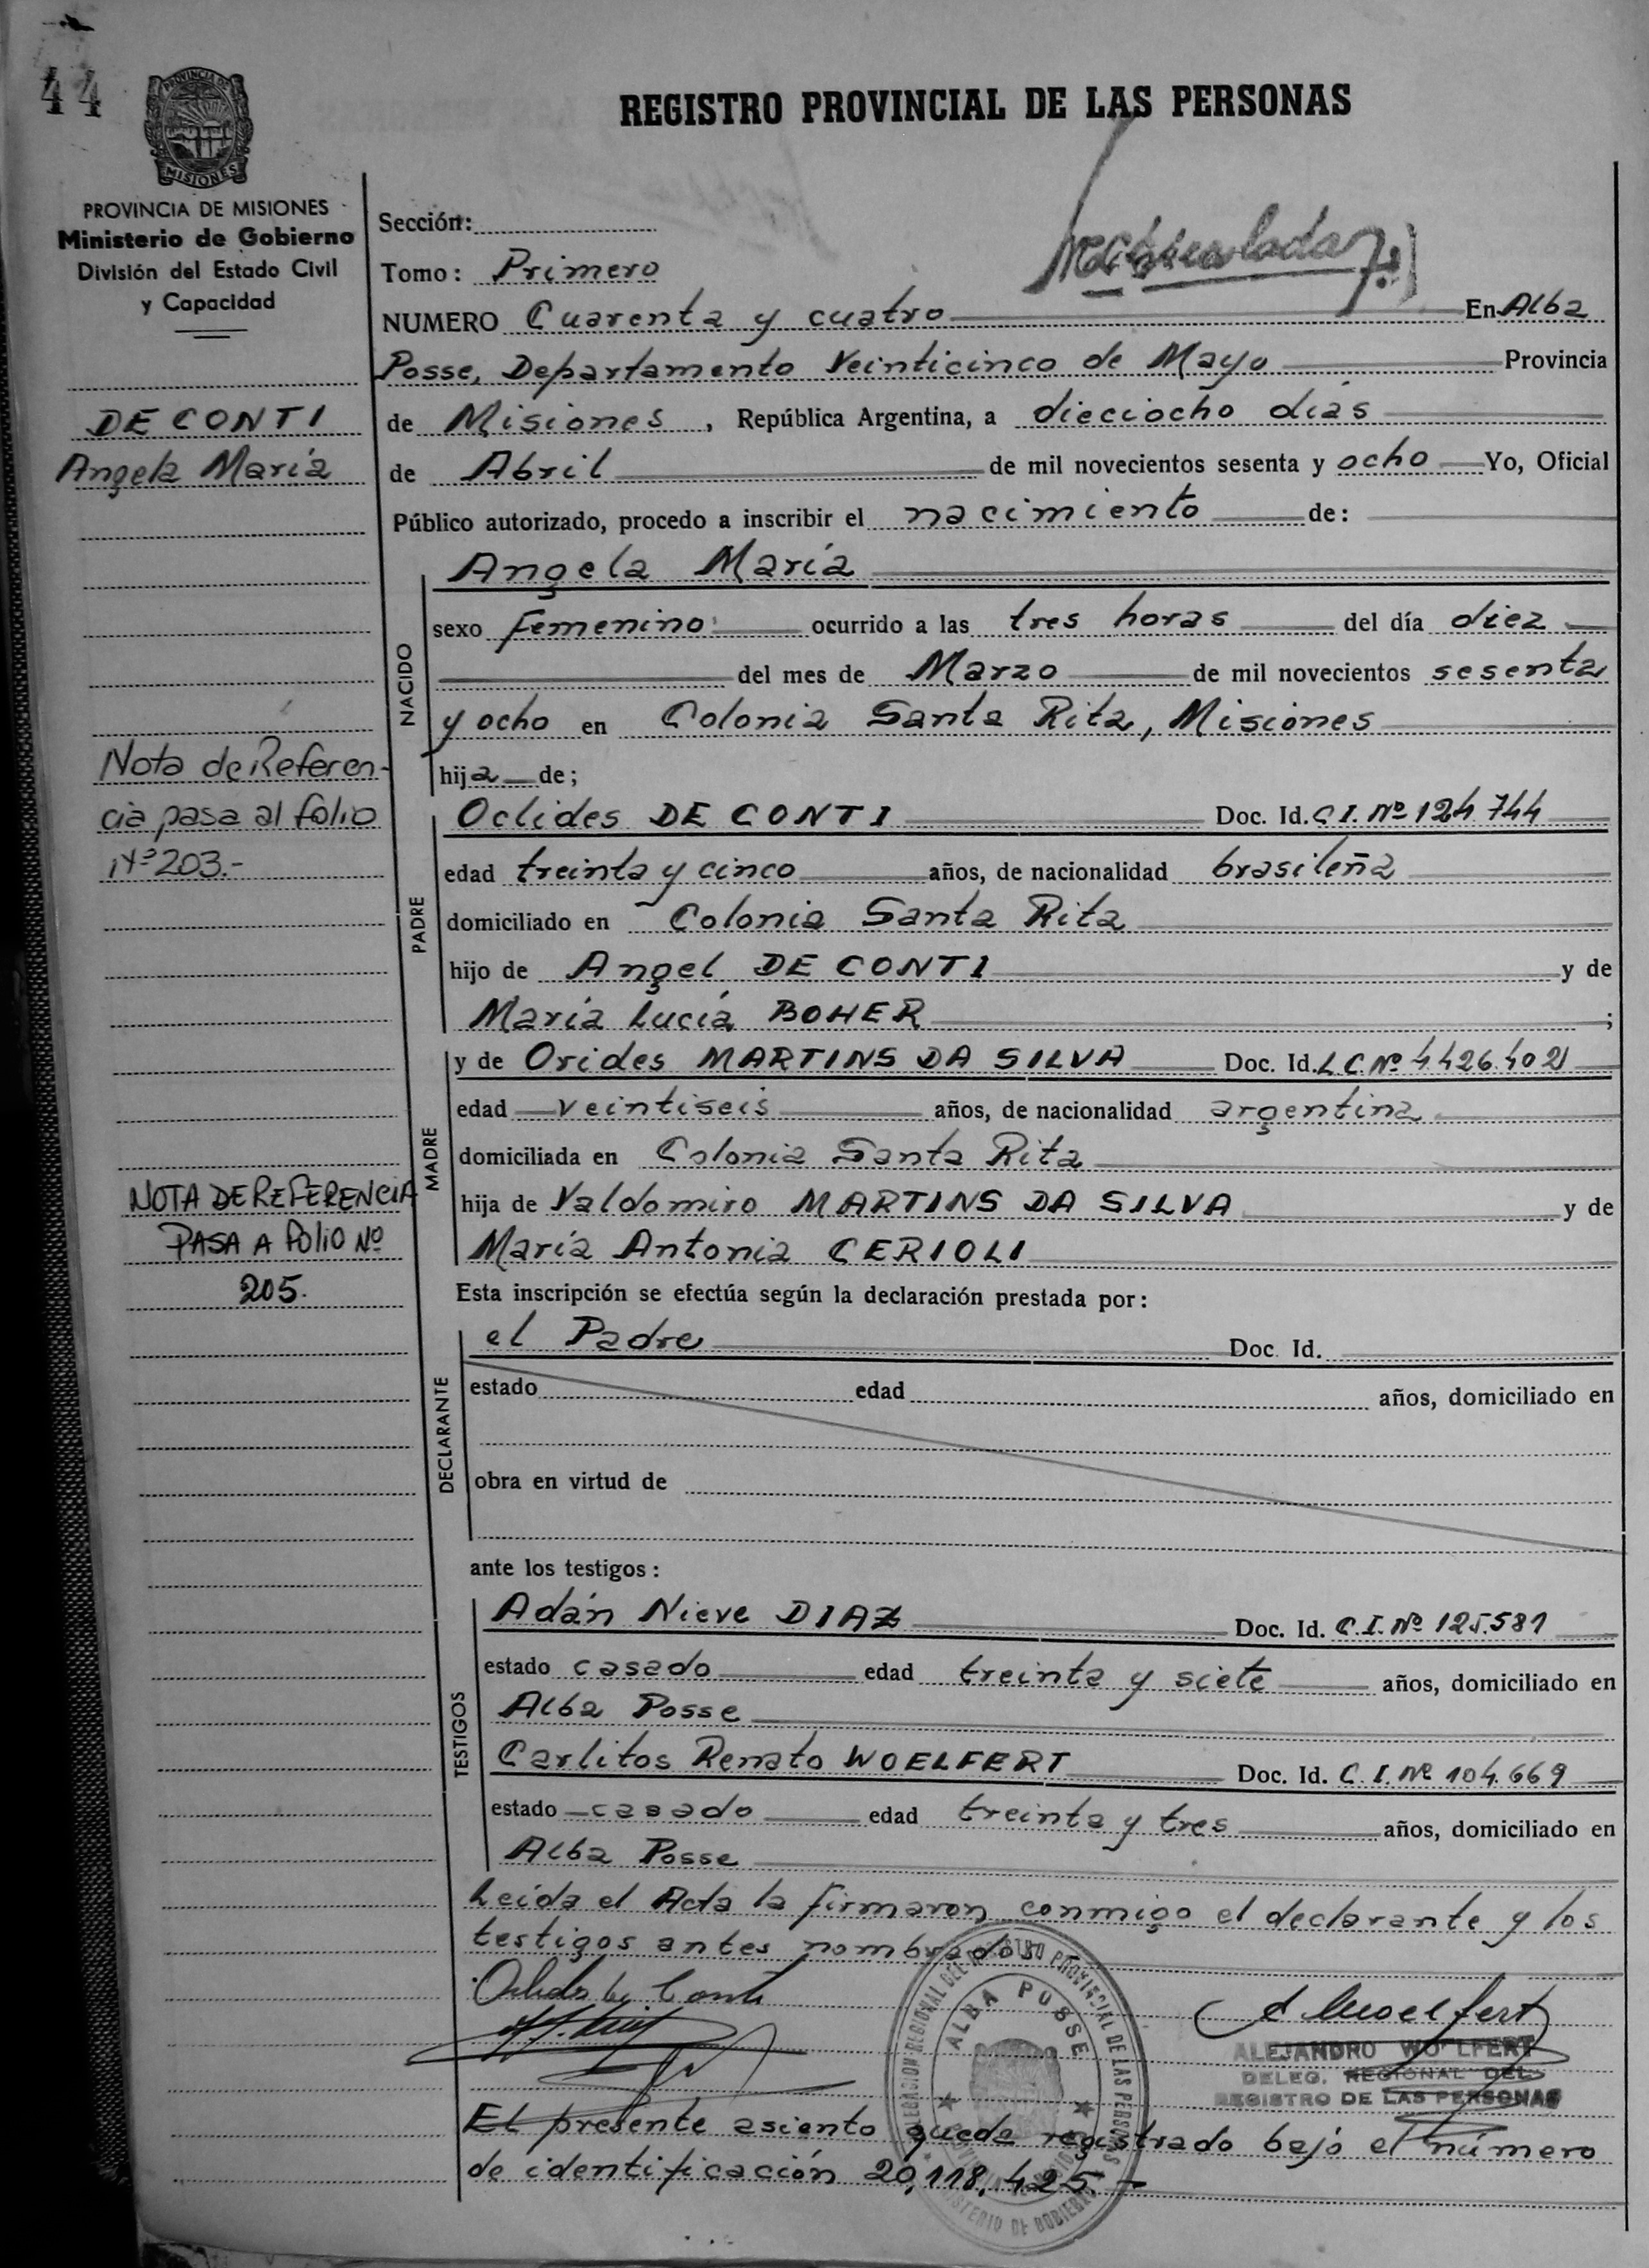 44
PROVINCIA DE
MISIONES
REGISTRO PROVINCIAL DE LAS PERSONAS
PROVINCIA DE MISIONES
Ministerio de Gobierno
División del Estado Civil
y Capacidad
DE CONTI
Angela María
Nota de Referen-
cia pasa al folio
Nº 203.-
NOTA DE REFERENCIA
PASA A FOLIO Nº
205.
Sección:
Tomo: Primero
NUMERO Cuarenta y cuatro En Alba
Posse, Departamento Veinticinco de Mayo Provincia
de Misiones, República Argentina, a dieciocho días
de Abril de mil novecientos sesenta y ocho Yo, Oficial
Público autorizado, procedo a inscribir el nacimiento de:
Angela María
NACIDO
sexo femenino ocurrido a las tres horas del día diez
del mes de Marzo de mil novecientos sesenta
y ocho en Colonia Santa Rita, Misiones
hija de;
PADRE
Oclides DE CONTI Doc. Id. C.I. Nº 124.744
edad treinta y cinco años, de nacionalidad brasileña
domiciliado en Colonia Santa Rita
hijo de Angel DE CONTI y de
María Lucía BOHER ;
MADRE
y de Orides MARTINS DA SILVA Doc. Id. L.C. Nº 4.426.402
edad veintiseis años, de nacionalidad argentina
domiciliada en Colonia Santa Rita
hija de Valdomiro MARTINS DA SILVA y de
María Antonia CERIOLI
Esta inscripción se efectúa según la declaración prestada por:
DECLARANTE
el Padre Doc. Id.
estado edad años, domiciliado en
obra en virtud de
ante los testigos:
TESTIGOS
Adán Nieve DIAZ Doc. Id. C.I. Nº 125.581
estado casado edad treinta y siete años, domiciliado en
Alba Posse
Carlitos Renato WOELFERT Doc. Id. C.I. Nº 104.669
estado casado edad treinta y tres años, domiciliado en
Alba Posse
Leída el Acta la firmaron conmigo el declarante y los
testigos antes nombrados
A Woelfert
ALEJANDRO WOELFERT
DELEG. REGIONAL DEL
REGISTRO DE LAS PERSONAS
DELEGACION REGIONAL DEL REGISTRO PROVINCIAL DE LAS PERSONAS
ALBA POSSE
MINISTERIO DE GOBIERNO
El presente asiento queda registrado bajo el número
de identificación 20.118.425.-